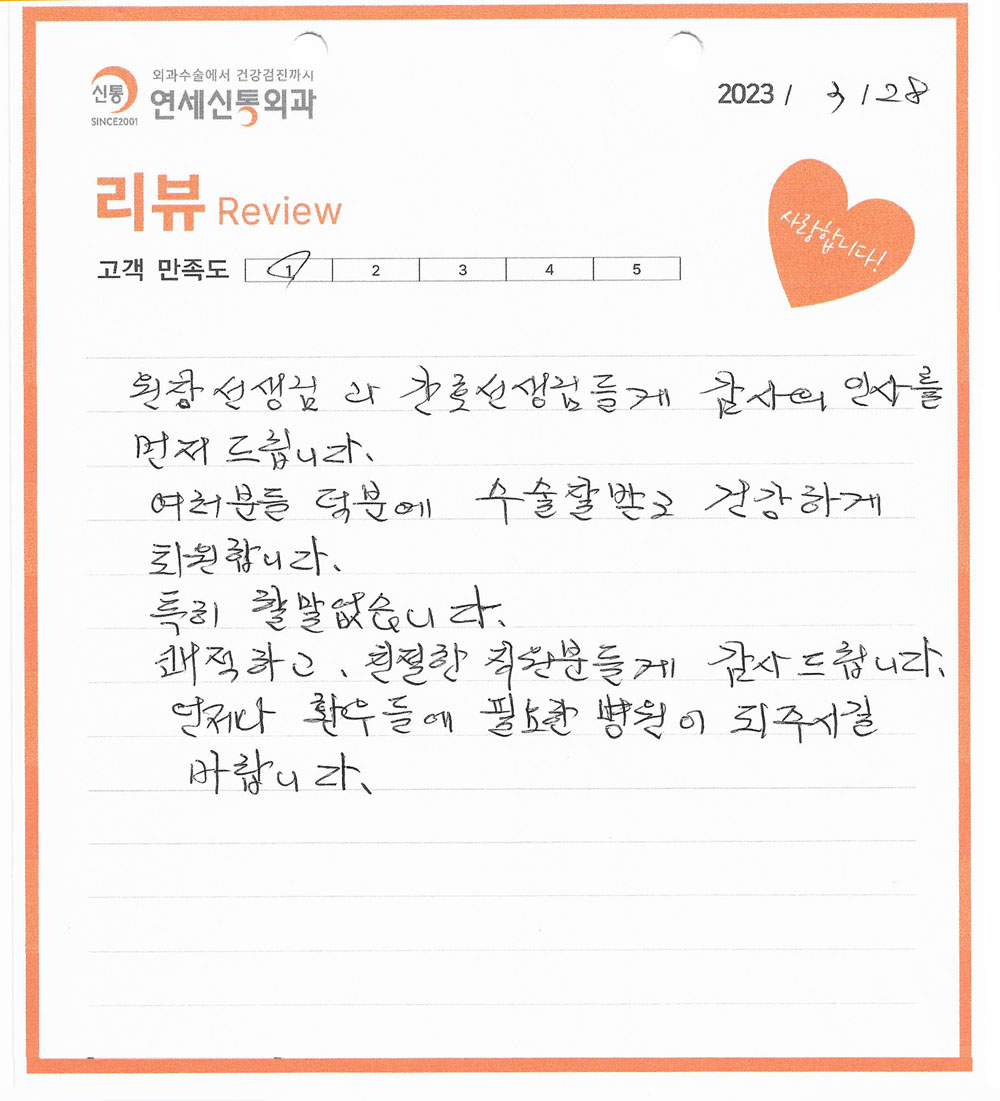 외과수술에서 건강검진까지
신통
연세신통외과
SINCE2001
2023 / 3 / 28
리뷰 Review
사랑합니다!
고객 만족도 1 2 3 4 5
원장선생님 과 간호선생님들게 감사의 인사를
먼저 드립니다.
여러분들 덕분에 수술잘받고 건강하게
퇴원합니다.
특히 할말없습니다.
쾌적하고, 친절한 직원분들게 감사드립니다.
언제나 환우들에 필요한 병원이 되주시길
바랍니다.